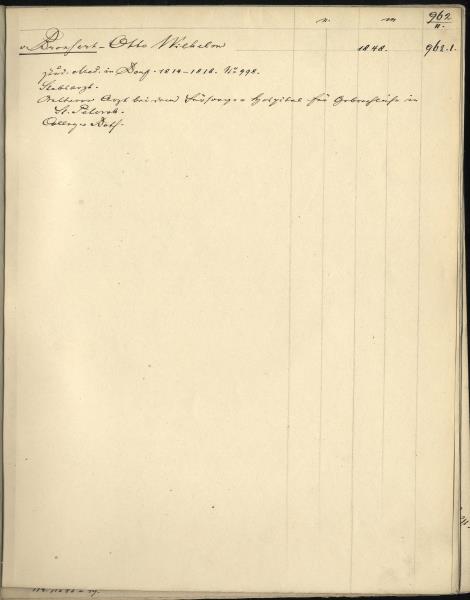 n. m 962
II.
v. Bronsert - Otto Wilhelm 1848. 962.1.
stud. Med. in Dorp. 1814-1818. № 998.
Stabsarzt.
Aelterer Arzt bei dem Hospital für Gebrechliche in
St. Petersb.
Colleg. Rath.